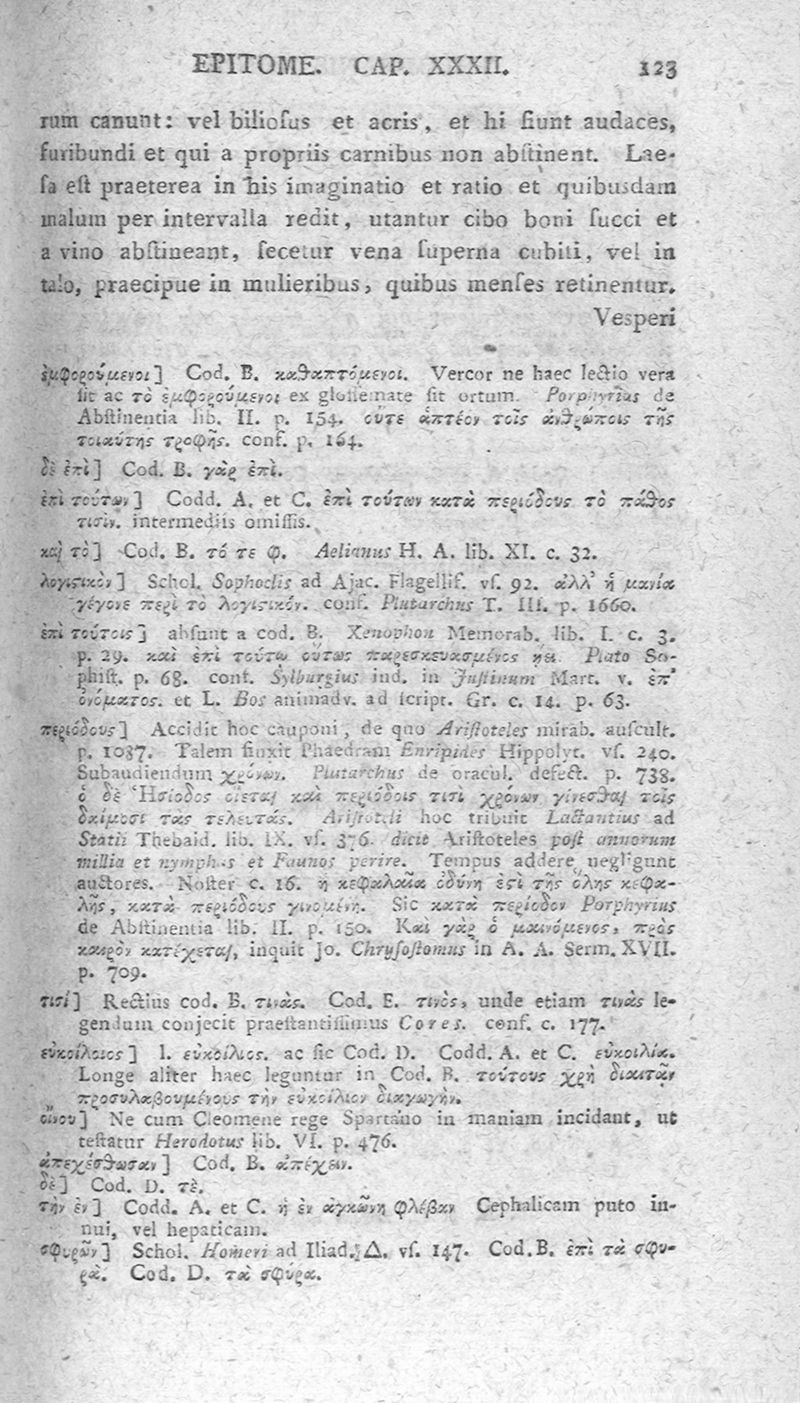 EPITOME. CAP. XXXII. 123
rum canunt: vel bilioſus et acris, et hi fiunt audaces,
furibundi et qui a propriis carnibus non abſtinent. Lae-
ſa eſt praeterea in his imaginatio et ratio et quibusdam
malum per intervalla redit, utantur cibo boni ſucci et
a vino abſtineant, ſecetur vena ſuperna cubiti, vel in
talo, praecipue in mulieribus, quibus menſes retinentur.
Vesperi
ἐμφορούμενοι] Cod. B. καθαπτόμενοι. Vercor ne haec lectio vera
ſit ac τὸ ἐμφορούμενοι ex gloſſemate ſit ortum. Porphyrius de
Abſtinentia lib. II. p. 154. οὔτε ἁπτέον τοῖς ἀνθρώποις τῆς
τοιαύτης τροφῆς. conf. p. 164.
δὲ ἐπὶ] Cod. B. γὰρ ἐπὶ.
ἐπὶ τούτων] Codd. A. et C. ἐπὶ τούτων κατὰ περιόδους τὸ πάθος
τισὶν. intermediis omiſſis.
καὶ τὸ] Cod. B. τό τε φ. Aelianus H. A. lib. XI. c. 32.
λογιϛικὸν] Schol. Sophoclis ad Ajac. Flagellif. vſ. 92. ἀλλ' ἡ μανία
γέγονε περὶ τὸ λογιϛικόν. conf. Plutarchus T. III. p. 1660.
ἐπὶ τούτοις] abſunt a cod. B. Xenophon Memorab. lib. I. c. 3.
p. 29. καὶ ἐπὶ τούτῳ οὕτως παρεσκευασμένος ᾔει. Plato So-
phiſt. p. 68. conf. Sylburgius ind. in Juſtinum Mart. v. ἐπ'
ὀνόματος. et L. Bos animadv. ad ſcript. Gr. c. 14. p. 63.
περιόδους] Accidit hoc cauponi, de quo Ariſtoteles mirab. auſcult.
p. 1087. Talem finxit Phaedram Euripides Hippolyt. vſ. 240.
Subaudiendum χρόνων. Plutarchus de oracul. defect. p. 738.
ὁ δὲ Ἡσίοδος οἴεται καὶ περιόδοις τισὶ χρόνων γίνεσθαι τοῖς
δαίμοσι τὰς τελευτάς. Ariſtoteli hoc tribuit Lactantius ad
Statii Thebaid. lib. IX. vſ. 376. dicit Ariſtoteles poſt annorum
millia et nymphas et Faunos perire. Tempus addere negligunt
auctores. Noſter c. 16. ἡ κεφαλαία ὀδύνη ἐϛὶ τῆς ὅλης κεφα-
λῆς, κατὰ περιόδους γινομένη. Sic κατὰ περίοδον Porphyrius
de Abſtinentia lib. II. p. 150. Καὶ γὰρ ὁ μαινόμενος, πρὸς
καιρὸν κατέχεται, inquit Jo. Chryſoſtomus in A. A. Serm. XVII.
p. 709.
τισί] Rectius cod. B. τινάς. Cod. E. τινὸς, unde etiam τινὰς le-
gendum conjecit praeſtantiſſimus Cores. conf. c. 177.
εὐκοίλοιος] l. εὐκοίλιος. ac ſic Cod. D. Codd. A. et C. εὐκοιλία.
Longe aliter haec leguntur in Cod. B. τούτους χρὴ διαιτᾶν
προσυλαβουμένους τὴν εὐκοίλιον διαγωγὴν.
οἴνου] Ne cum Cleomene rege Spartano in maniam incidant, ut
teſtatur Herodotus lib. VI. p. 476.
ἀπεχέσθωσαν] Cod. B. ἀπέχειν.
δὲ] Cod. D. τὲ.
τὴν ἐν] Codd. A. et C. ἡ ἐν ἀγκῶνη φλέβαν Cephalicam puto in-
nui, vel hepaticam.
σφυρῶν] Schol. Homeri ad Iliad. Δ. vſ. 147. Cod. B. ἐπὶ τὰ σφυ-
ρὰ. Cod. D. τὰ σφύρα.